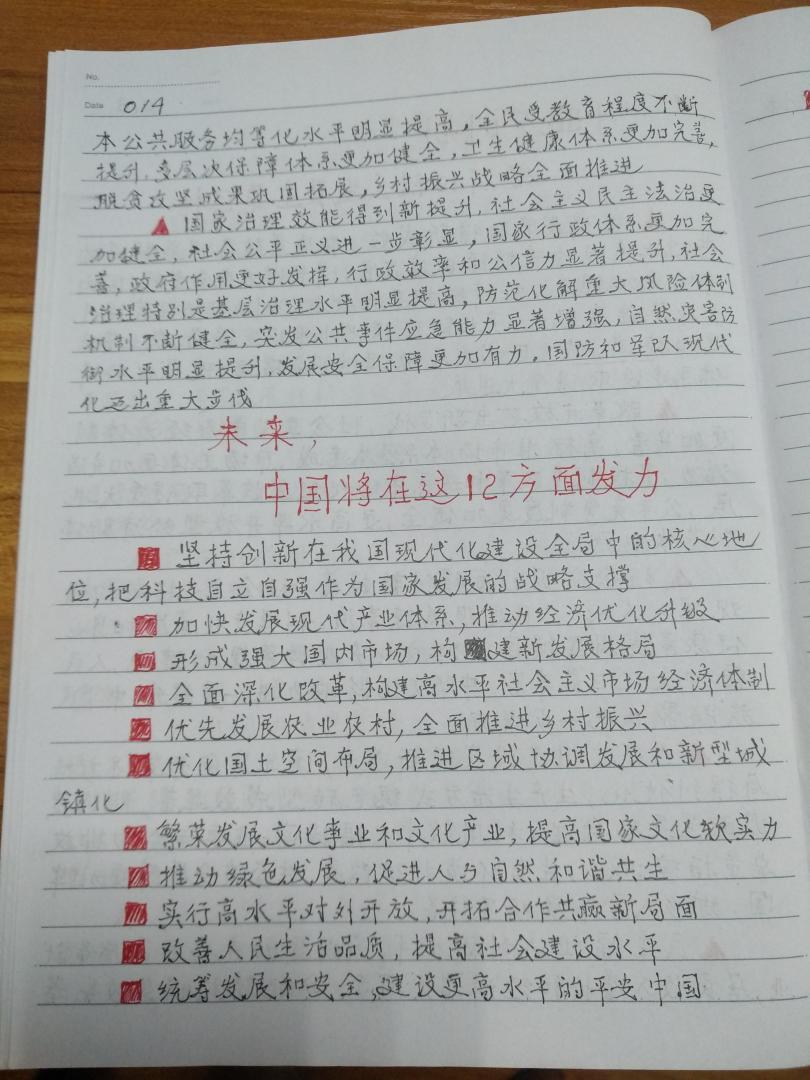 No.
Date 014
本公共服务均等化水平明显提高，全民受教育程度不断
提升，多层次保障体系更加健全，卫生健康体系更加完善，
脱贫攻坚成果巩固拓展，乡村振兴战略全面推进
国家治理效能得到新提升，社会主义民主法治更
加健全，社会公平正义进一步彰显，国家行政体系更加完
善，政府作用更好发挥，行政效率和公信力显著提升，社会
治理特别是基层治理水平明显提高，防范化解重大风险体制
机制不断健全，突发公共事件应急能力显著增强，自然灾害防
御水平明显提升，发展安全保障更加有力。国防和军队现代
化迈出重大步伐
未来，
中国将在这12方面发力
坚持创新在我国现代化建设全局中的核心地
位，把科技自立自强作为国家发展的战略支撑
加快发展现代产业体系，推动经济优化升级
形成强大国内市场，构建新发展格局
全面深化改革，构建高水平社会主义市场经济体制
优先发展农业农村，全面推进乡村振兴
优化国土空间布局，推进区域协调发展和新型城
镇化
繁荣发展文化事业和文化产业，提高国家文化软实力
推动绿色发展，促进人与自然和谐共生
实行高水平对外开放，开拓合作共赢新局面
改善人民生活品质，提高社会建设水平
统筹发展和安全，建设更高水平的平安中国